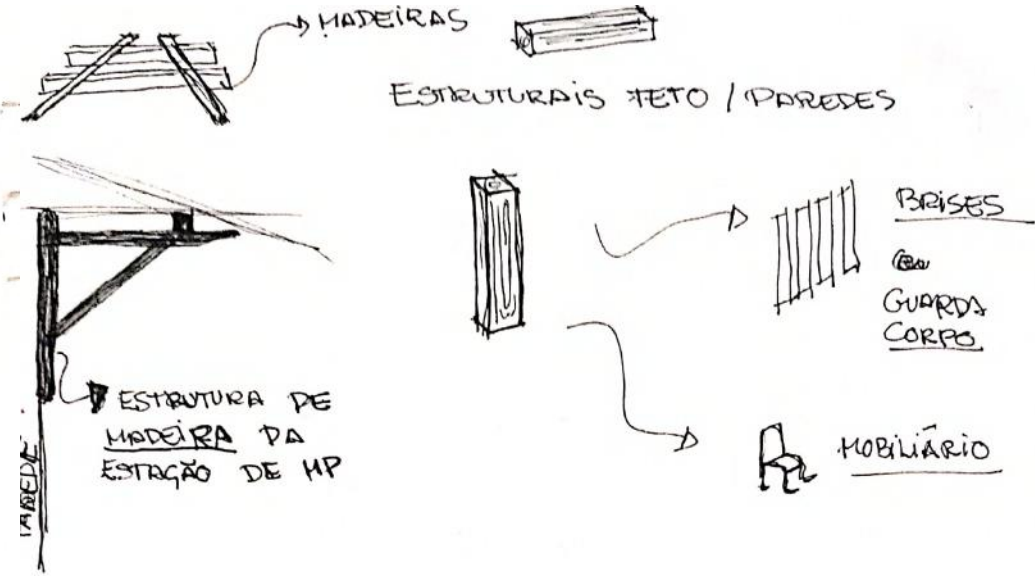 MADEIRAS
ESTRUTURAIS TETO / PAREDES
BRISES
ou
GUARDA
CORPO
ESTRUTURA DE
MADEIRA DA
ESTAÇÃO DE MP
PAREDE
MOBILIÁRIO